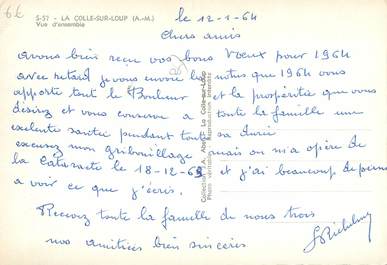 6€
S-57 - LA COLLE-SUR-LOUP (A.-M.)
Vue d'ensemble
le 12-1-64
Chers amis
avons bien reçu vos bons Vœux pour 1964
avec retard je vous envoie les notres que 1964 vous
apporte tout le Bonheur et la prospérité que vous
désirez et vous conserve a toute la famille une
exelente santée pendant toute sa durée
excusez mon gribouillage mais on m'a opéré de
la Cataracte le 18-12-63 et j'ai beaucoup de peine
a voir ce que j'écris.
Recevez toute la famille de nous trois
nos amitiées bien sincères
Collection A. La Colle-sur-Loup